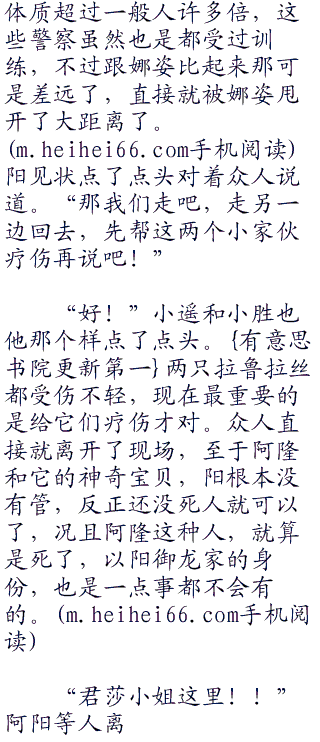 体质超过一般人许多倍，这
些警察虽然也是都受过训
练，不过跟娜姿比起来那可
是差远了，直接就被娜姿甩
开了大距离了。
(m.heihei66.com手机阅读)
阳见状点了点头对着众人说
道。“那我们走吧，走另一
边回去，先帮这两个小家伙
疗伤再说吧！”
“好！”小遥和小胜也
他那个样点了点头。{有意思
书院更新第一}两只拉鲁拉丝
都受伤不轻，现在最重要的
是给它们疗伤才对。众人直
接就离开了现场，至于阿隆
和它的神奇宝贝，阳根本没
有管，反正还没死人就可以
了，况且阿隆这种人，就算
是死了，以阳御龙家的身
份，也是一点事都不会有
的。(m.heihei66.com手机阅
读)
“君莎小姐这里！！”
阿阳等人离